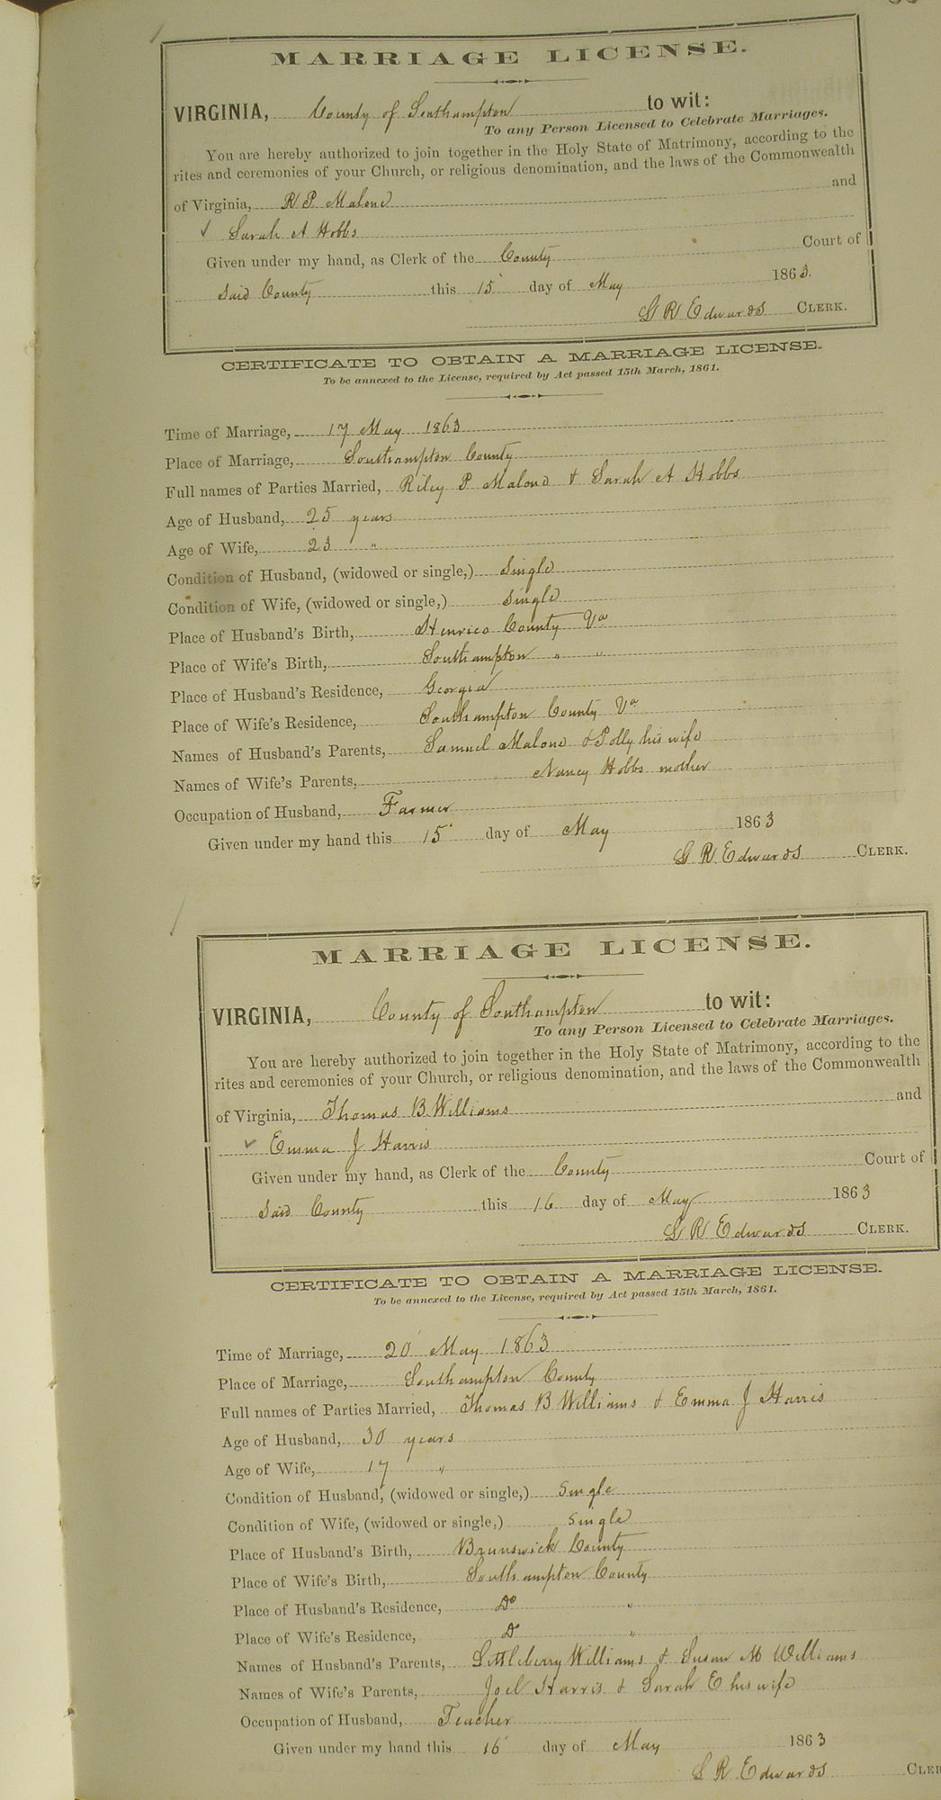 MARRIAGE LICENSE.
VIRGINIA, County of Southampton to wit:
To any Person Licensed to Celebrate Marriages.
You are hereby authorized to join together in the Holy State of Matrimony, according to the
rites and ceremonies of your Church, or religious denomination, and the laws of the Commonwealth
of Virginia, R P Malone and
✓ Sarah A Hobbs
Given under my hand, as Clerk of the County Court of
said County this 15 day of May 1863.
L R Edwards CLERK.
CERTIFICATE TO OBTAIN A MARRIAGE LICENSE.
To be annexed to the License, required by Act passed 15th March, 1861.
Time of Marriage, 17 May 1863
Place of Marriage, Southampton County
Full names of Parties Married, Riley P Malone & Sarah A Hobbs
Age of Husband, 25 years
Age of Wife, 23 "
Condition of Husband, (widowed or single,) Single
Condition of Wife, (widowed or single,) Single
Place of Husband's Birth, Henrico County Va
Place of Wife's Birth, Southampton " "
Place of Husband's Residence, Georgia
Place of Wife's Residence, Southampton County Va
Names of Husband's Parents, Samuel Malone & Polly his wife
Names of Wife's Parents, Nancy Hobbs mother
Occupation of Husband, Farmer
Given under my hand this 15 day of May 1863
L R Edwards CLERK.
MARRIAGE LICENSE.
VIRGINIA, County of Southampton to wit:
To any Person Licensed to Celebrate Marriages.
You are hereby authorized to join together in the Holy State of Matrimony, according to the
rites and ceremonies of your Church, or religious denomination, and the laws of the Commonwealth
of Virginia, Thomas B Williams and
✓ Emma J Harris
Given under my hand, as Clerk of the County Court of
said County this 16 day of May 1863
L R Edwards CLERK.
CERTIFICATE TO OBTAIN A MARRIAGE LICENSE.
To be annexed to the License, required by Act passed 15th March, 1861.
Time of Marriage, 20 May 1863
Place of Marriage, Southampton County
Full names of Parties Married, Thomas B Williams & Emma J Harris
Age of Husband, 30 years
Age of Wife, 17 "
Condition of Husband, (widowed or single,) Single
Condition of Wife, (widowed or single,) Single
Place of Husband's Birth, Brunswick County
Place of Wife's Birth, Southampton County
Place of Husband's Residence, Do "
Place of Wife's Residence, Do "
Names of Husband's Parents, Littleberry Williams & Susan M Williams
Names of Wife's Parents, Joel Harris & Sarah E his wife
Occupation of Husband, Teacher
Given under my hand this 16 day of May 1863
L R Edwards CLER